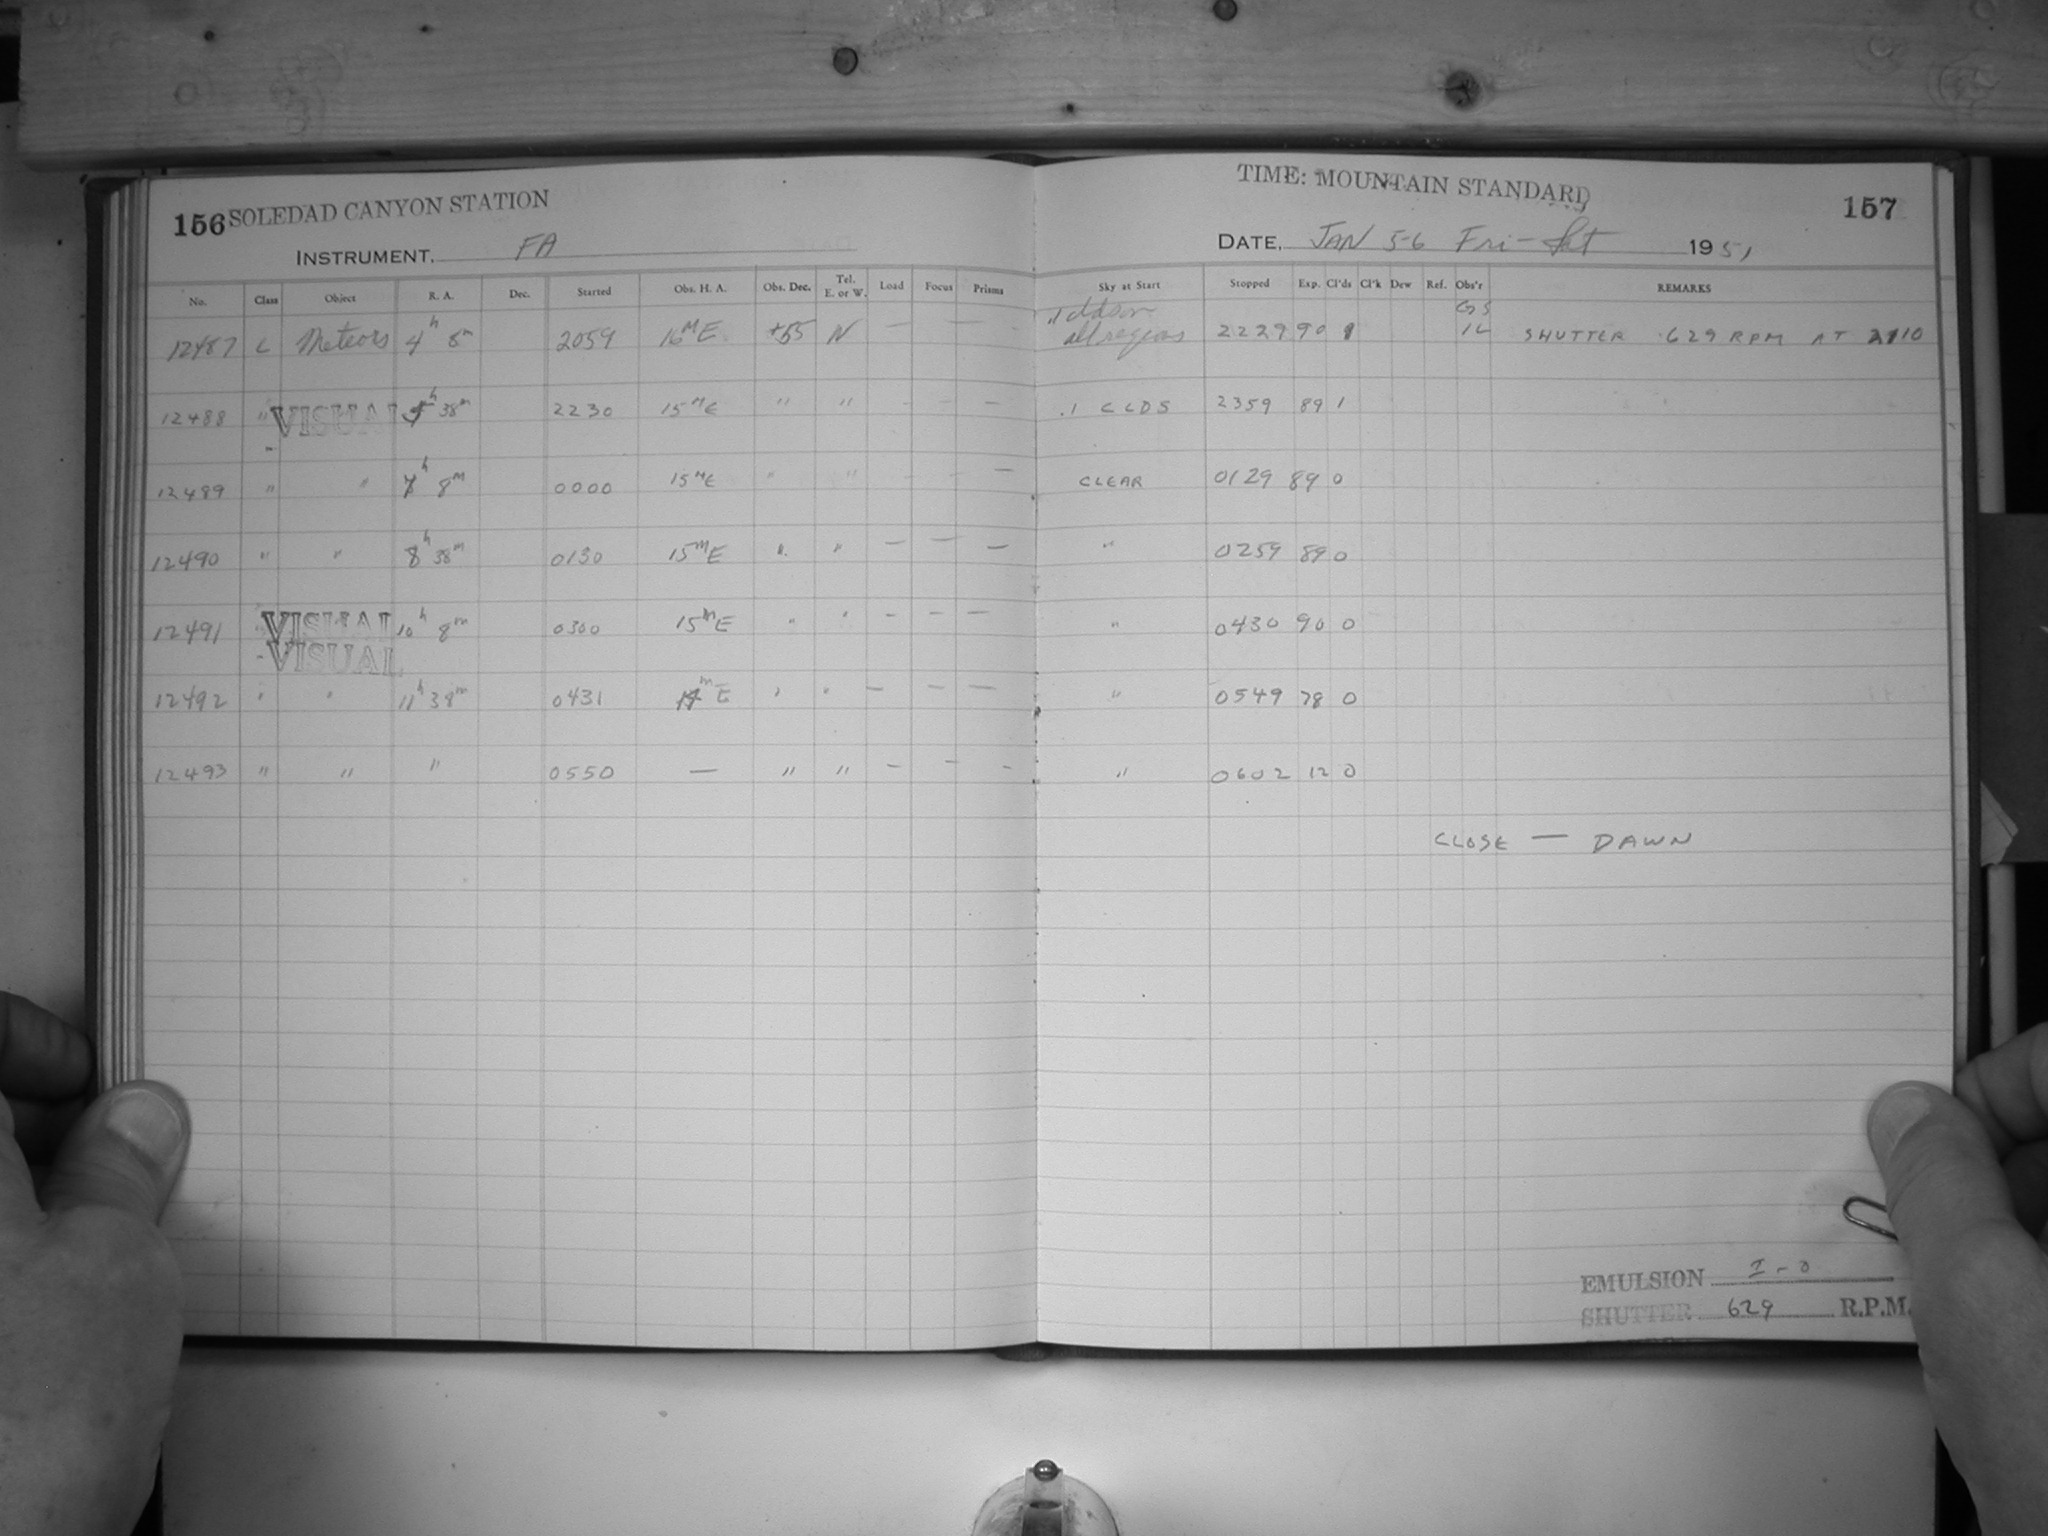 156 SOLEDAD CANYON STATION
INSTRUMENT, FA
TIME: MOUNTAIN STANDARD
157
DATE, JAN 5-6 Fri-Sat 1951
No. Class Object R. A. Dec. Started Obs. H. A. Obs. Dec. Tel. E. or W. Load Focus Prisms Sky at Start Stopped Exp. Cl'ds Cl'k Dew Ref. Obs'r REMARKS
GS
12487 C Meteors 4h 8m 2059 16ME +55 N — — — all regions 2229 90 1 IL SHUTTER 629 RPM AT 2110
12488 " VISUAL 5h 38m 2230 15ME " " - - - .1 CLDS 2359 89 1
12489 " " 7h 8m 0000 15ME " " - - — CLEAR 0129 89 0
12490 " " 8h 38m 0130 15mE " " — — — " 0259 89 0
12491 VISUAL 10h 8m 0300 15mE " " - - — " 0430 90 0
VISUAL
12492 " " 11h 38m 0431 mE " " — — — " 0549 78 0
12493 " " " 0550 — " " - - - " 0602 12 0
CLOSE — DAWN
EMULSION I-O
SHUTTER 629 R.P.M.